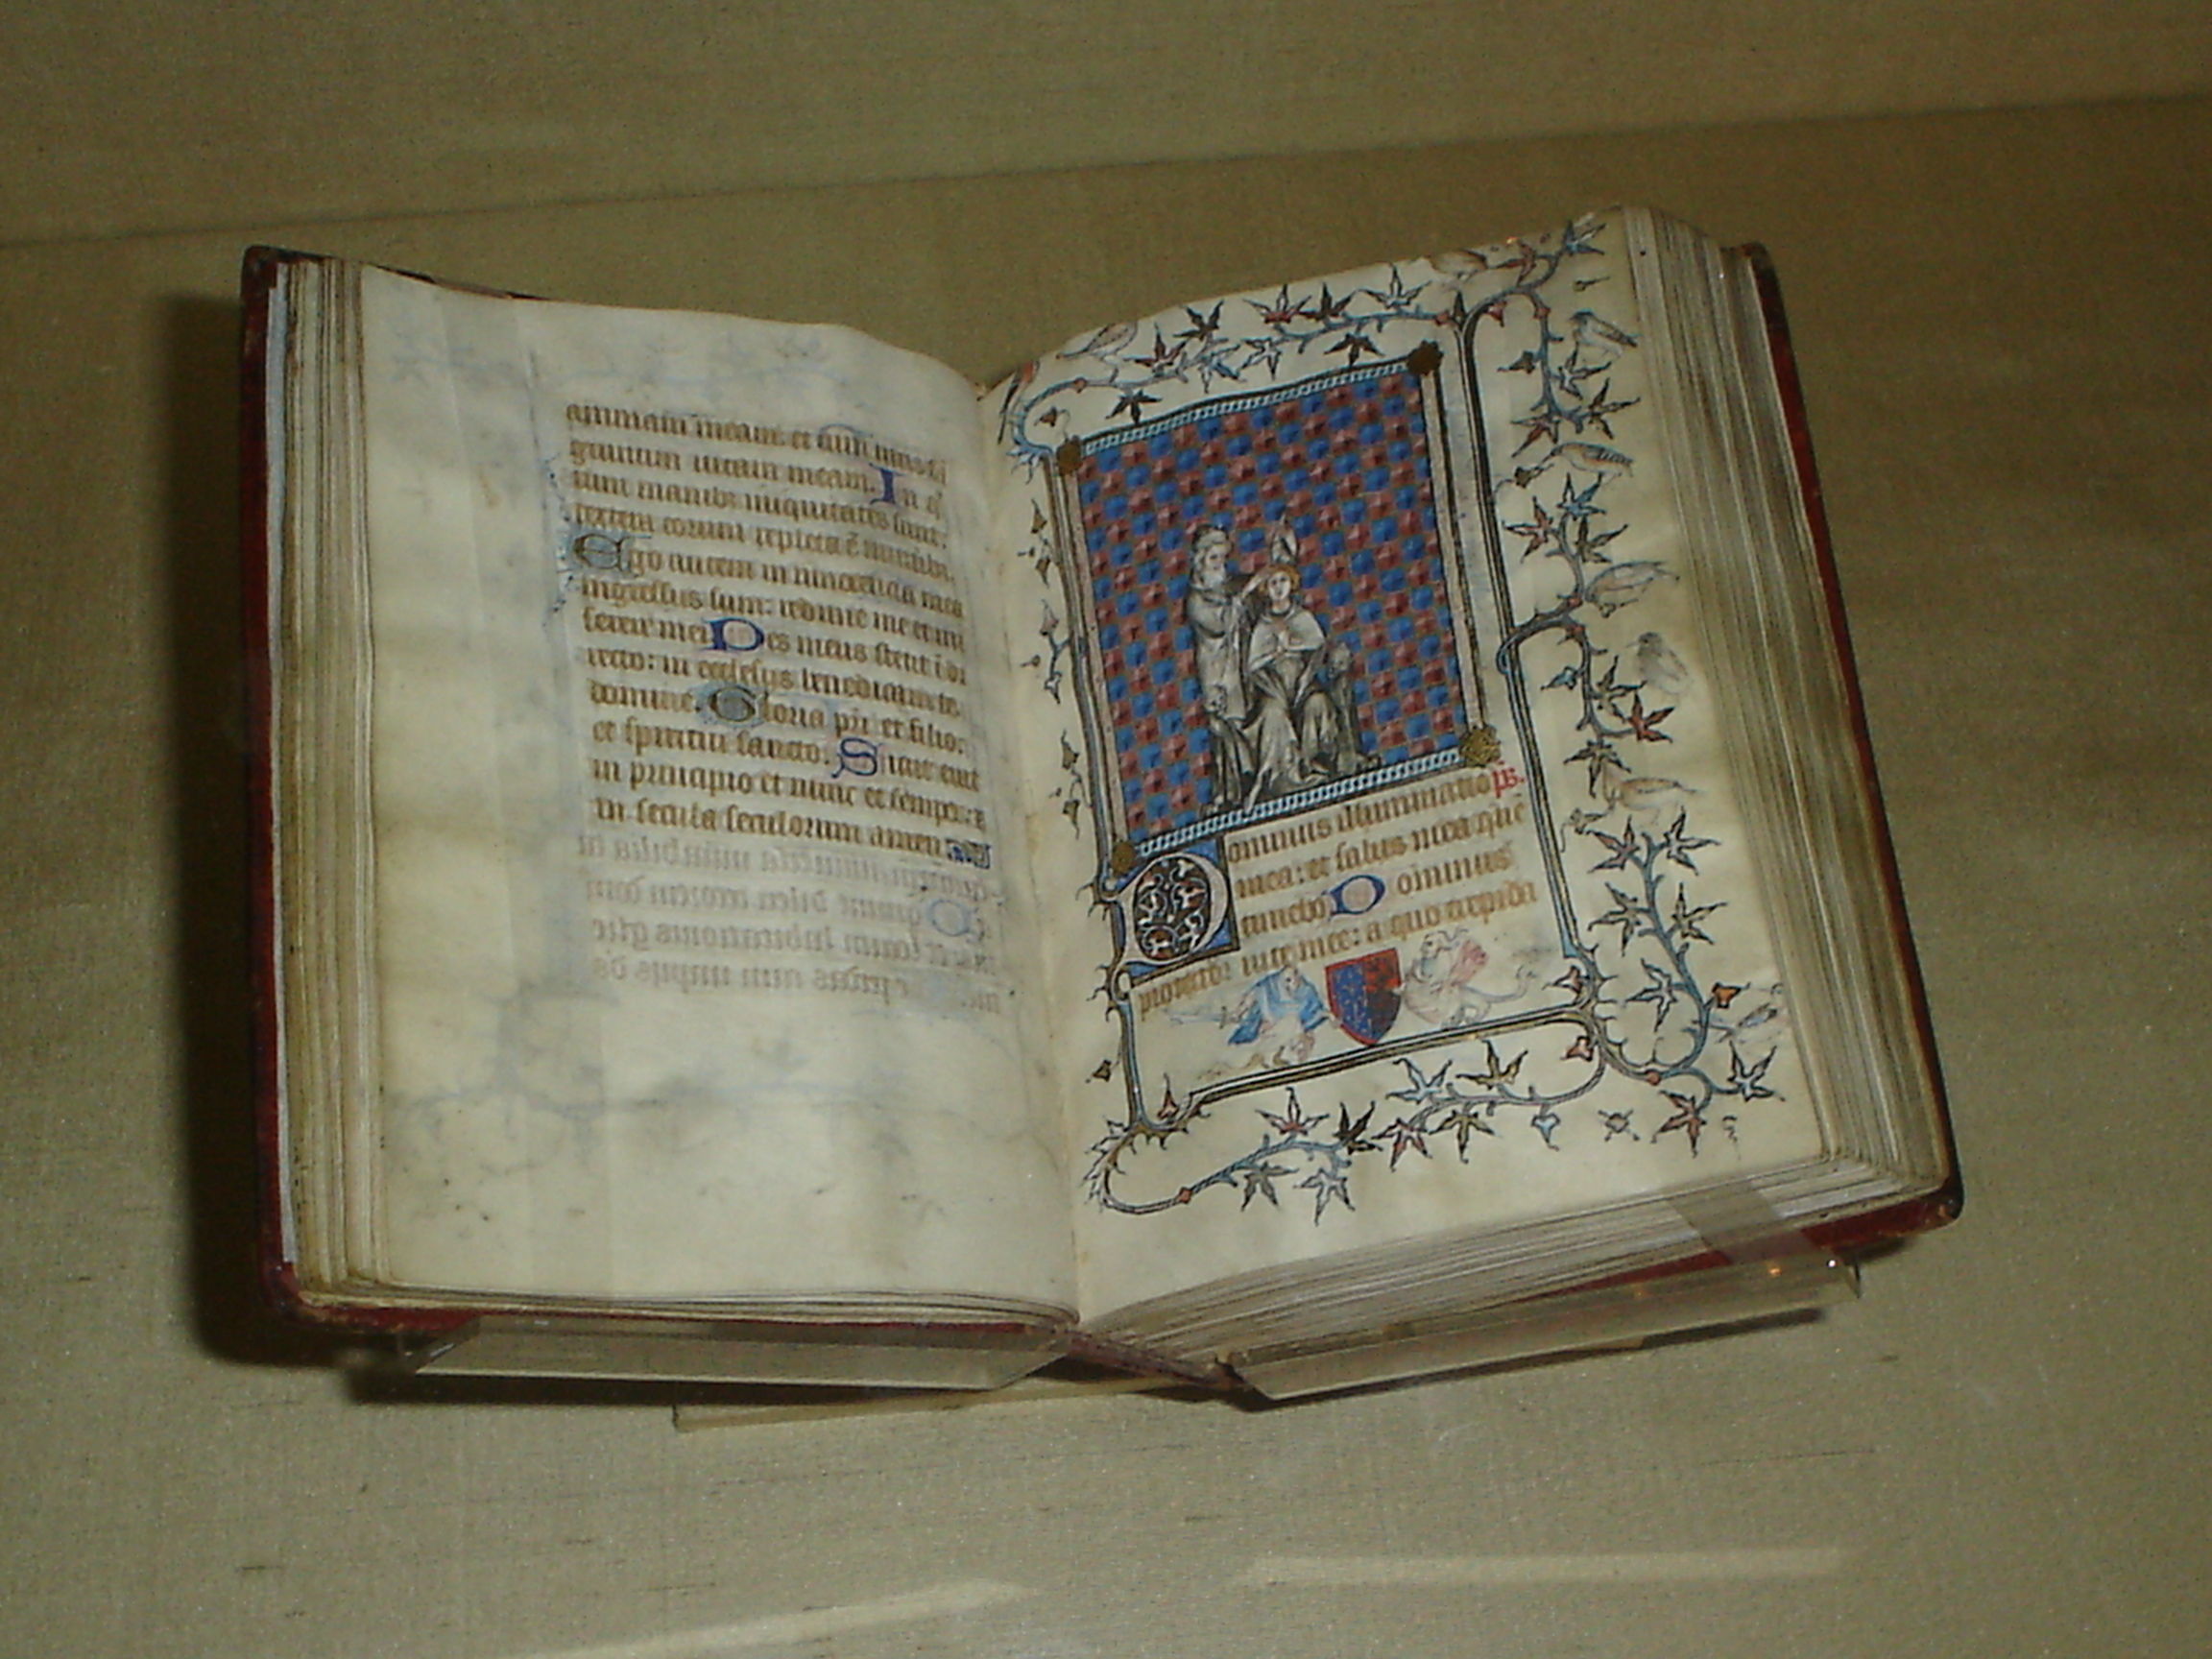 animam meam: et cum uiris sa
guinum uitam meam. In q
rum manib: iniquitates sunt:
dextera eorum repleta ē munerib:
Ego autem in innocentia mea
ingressus sum: redime me et mi
serere mei. Pes meus stetit i di
recto: in ecclesiis benedicam te
domine. Gloria pri et filio:
et spiritui sancto. Sicut erat
in principio et nunc et semper: et
in secula seculorum amen.
Dominus illuminatio ps.
mea: et salus mea quē
timebo. Dominus
protector uite mee: a quo trepida